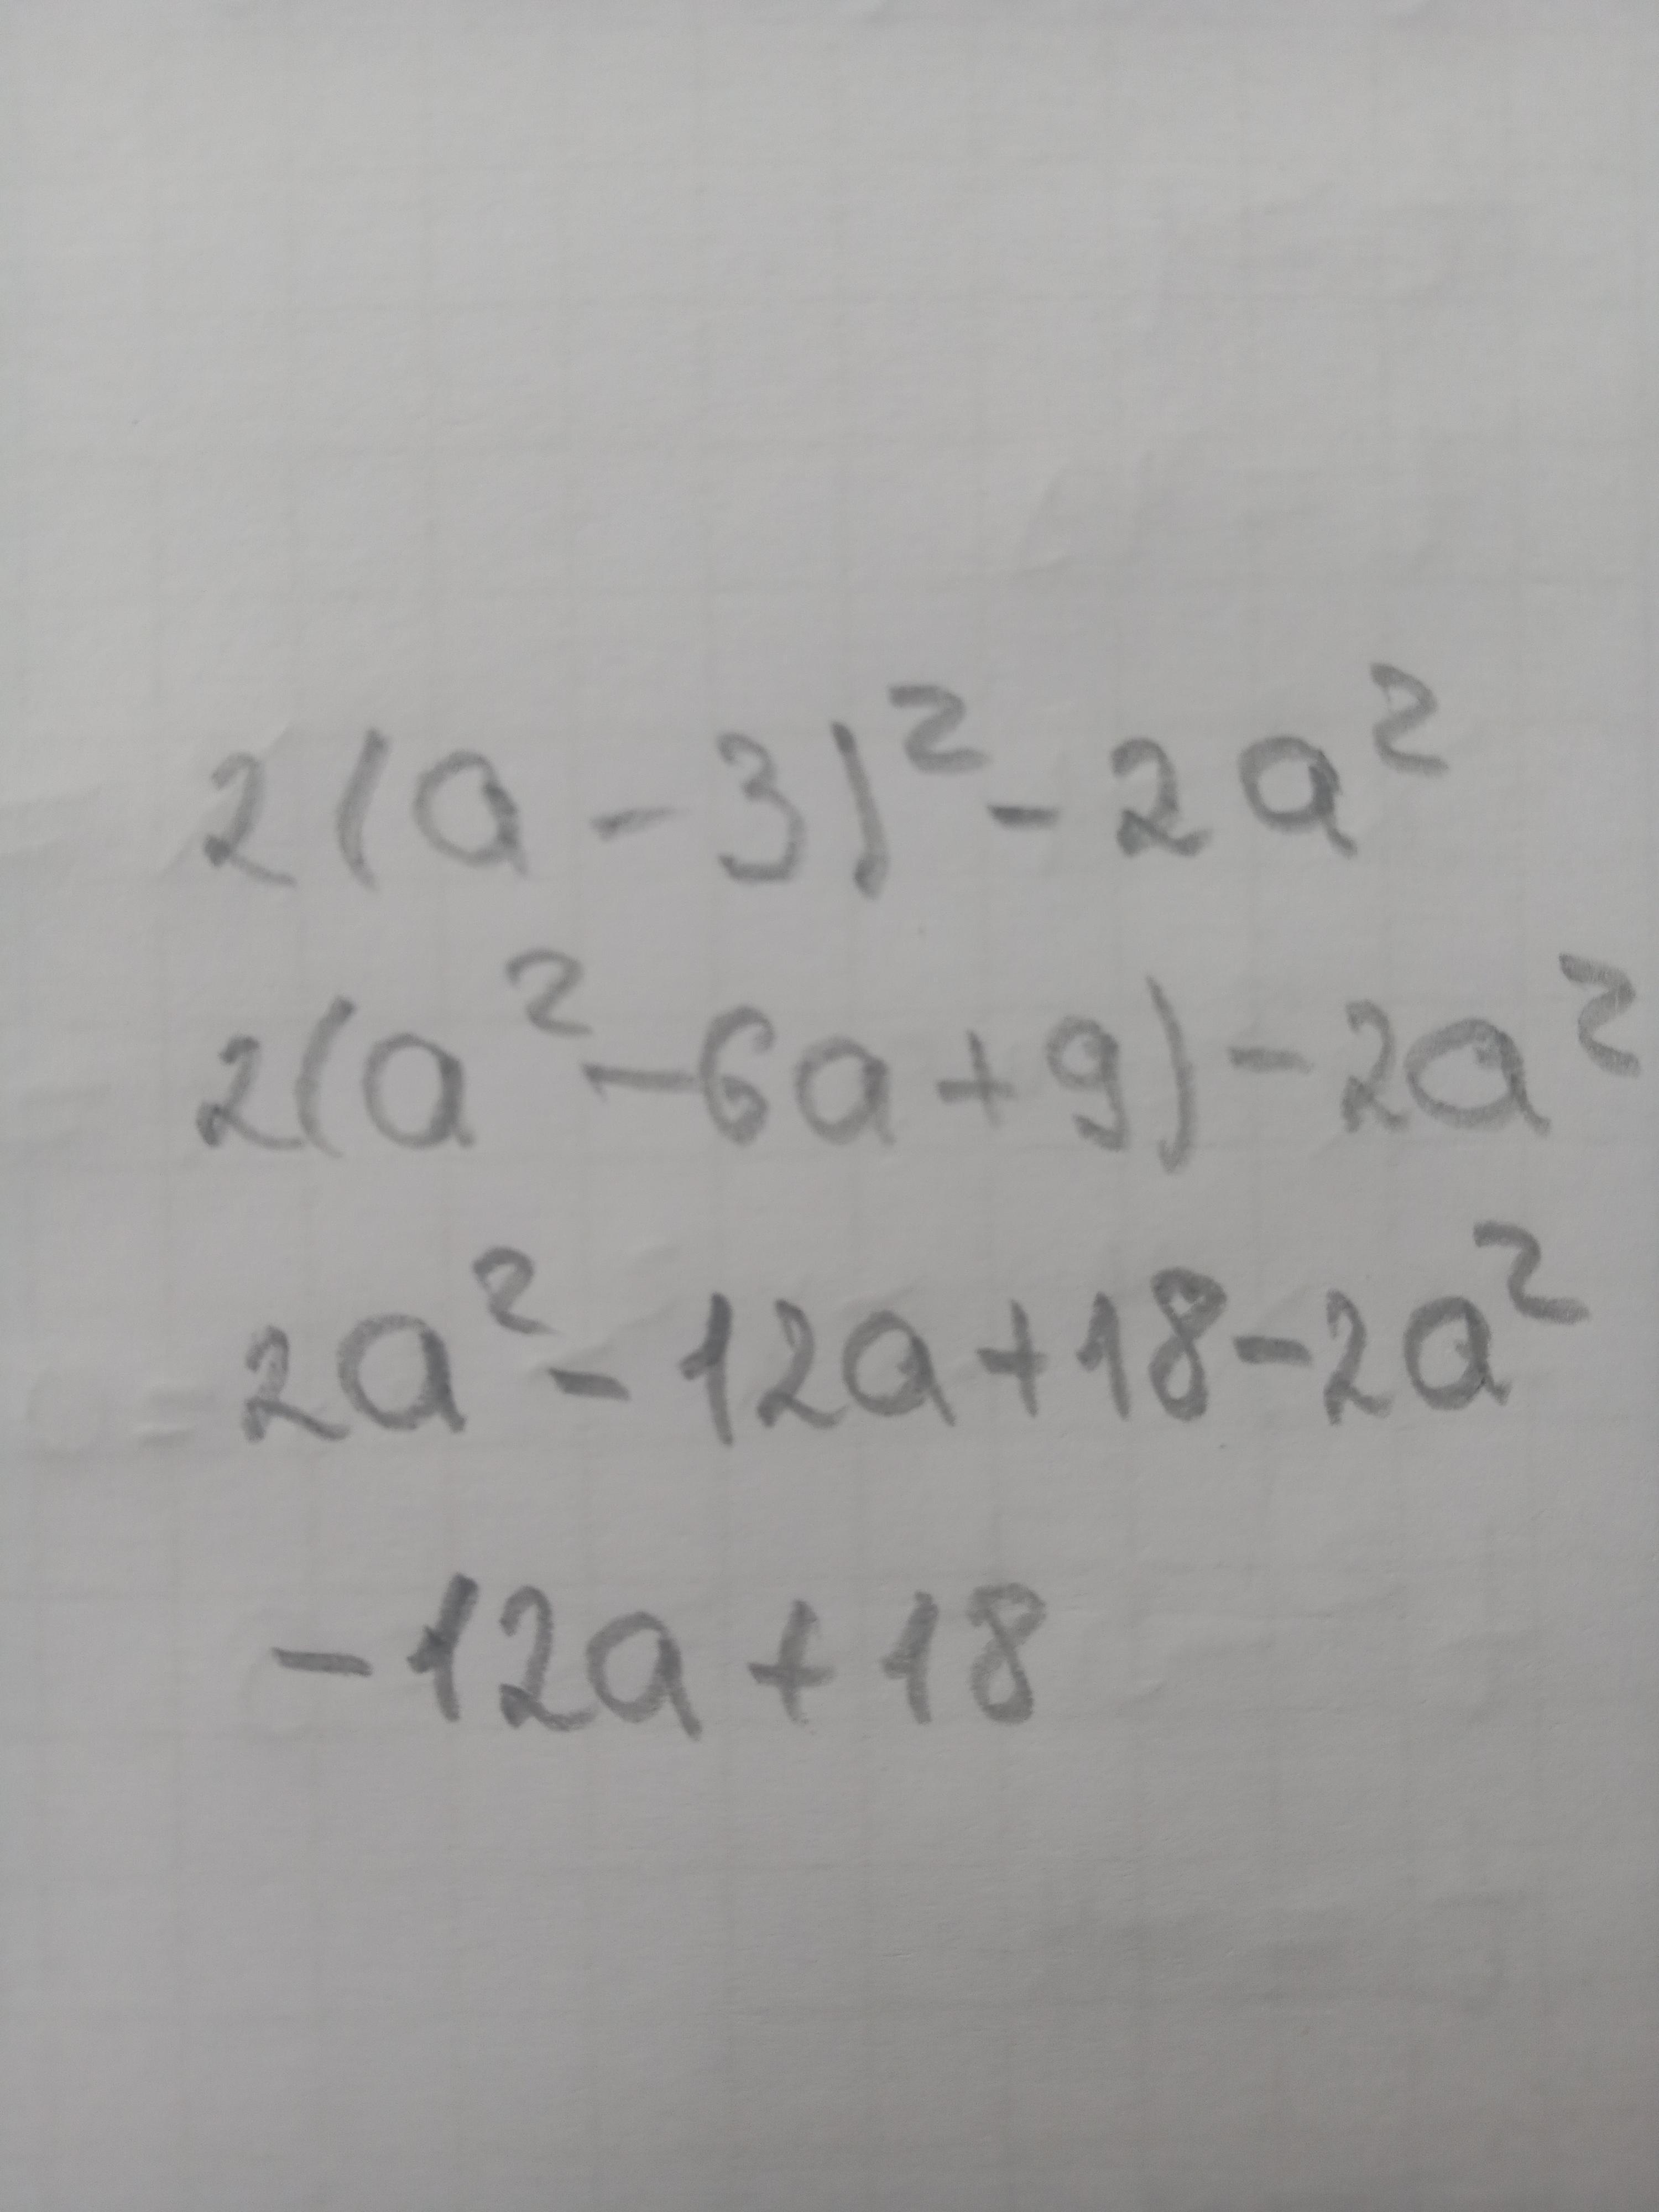 2(a-3)²-2a²
2(a²-6a+9)-2a²
2a²-12a+18-2a²
-12a+18